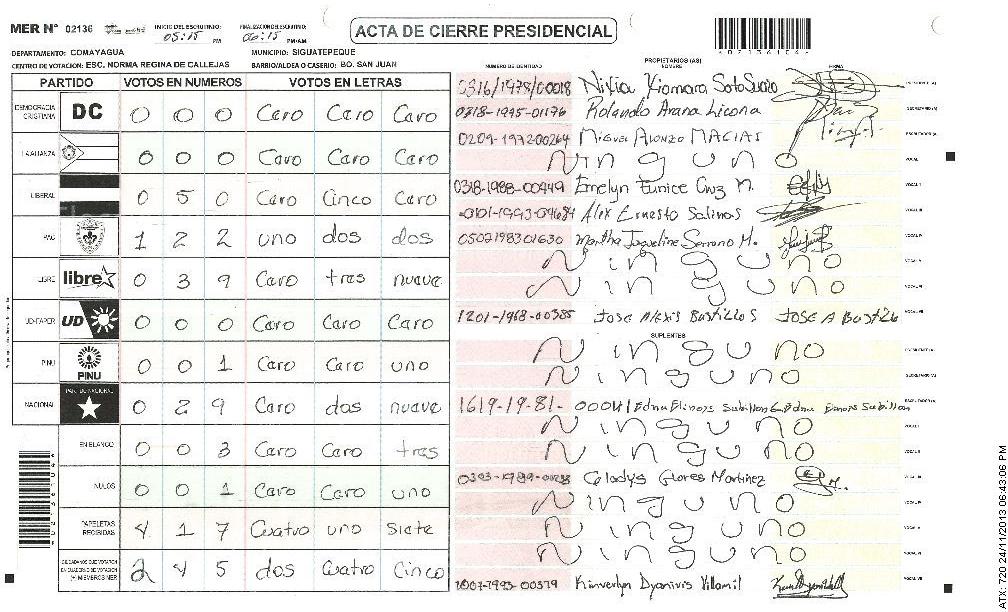 MER Nº 02136 INICIO DEL ESCRUTINIO: 05:15 PM FINALIZACION DEL ESCRUTINIO: 06:15 PM/AM ACTA DE CIERRE PRESIDENCIAL
DEPARTAMENTO: COMAYAGUA MUNICIPIO: SIGUATEPEQUE
CENTRO DE VOTACION: ESC. NORMA REGINA DE CALLEJAS BARRIO/ALDEA O CASERIO: BO. SAN JUAN
PARTIDO VOTOS EN NUMEROS VOTOS EN LETRAS
DEMOCRACIA CRISTIANA DC 0 0 0 Caro Caro Caro
LA ALIANZA 0 0 0 Caro Caro Caro
LIBERAL 0 5 0 Caro Cinco Caro
PAC 1 2 2 uno dos dos
LIBRE libre 0 3 9 Caro tras nuave
UD-FAPER UD 0 0 0 Caro Caro Caro
PINU PINU 0 0 1 Caro Caro uno
NACIONAL PARTIDO NACIONAL 0 2 9 Caro dos nuave
EN BLANCO 0 0 3 Caro Caro tras
NULOS 0 0 1 Caro Caro uno
PAPELETAS RECIBIDAS 4 1 7 Cuatro uno siete
CIUDADANOS QUE VOTARON EN CUADERNO DE VOTACION (+) MIEMBROS MER 2 4 5 dos Cuatro Cinco
PROPIETARIOS (AS)
NUMERO DE IDENTIDAD NOMBRE FIRMA
0316/1978/00018 Nixia Xiomara Soto Suazo
0318-1975-01176 Rolando Arana Licona
0209-1972-00264 Miguel Alonzo MACIAS
Ninguno
0318-1988-00449 Emelyn Eunice Cruz M.
0101-1993-04684 Alex Ernesto Salinas
0502198301630 Martha Jaqueline Serrano M.
Ninguno
Ninguno
1201-1968-00385 JOSE Alexis Bustillos JOSE A Bustillo
SUPLENTES
Ninguno
Ninguno
1619-19-81-00041
Ninguno
Ninguno
Gladys Flores Martinez
Ninguno
Ninguno
Ninguno
1007-1993-00379 Kimverlyn Dyanivis Villamil
ATX: 720 24/11/2013 06:43:06 PM